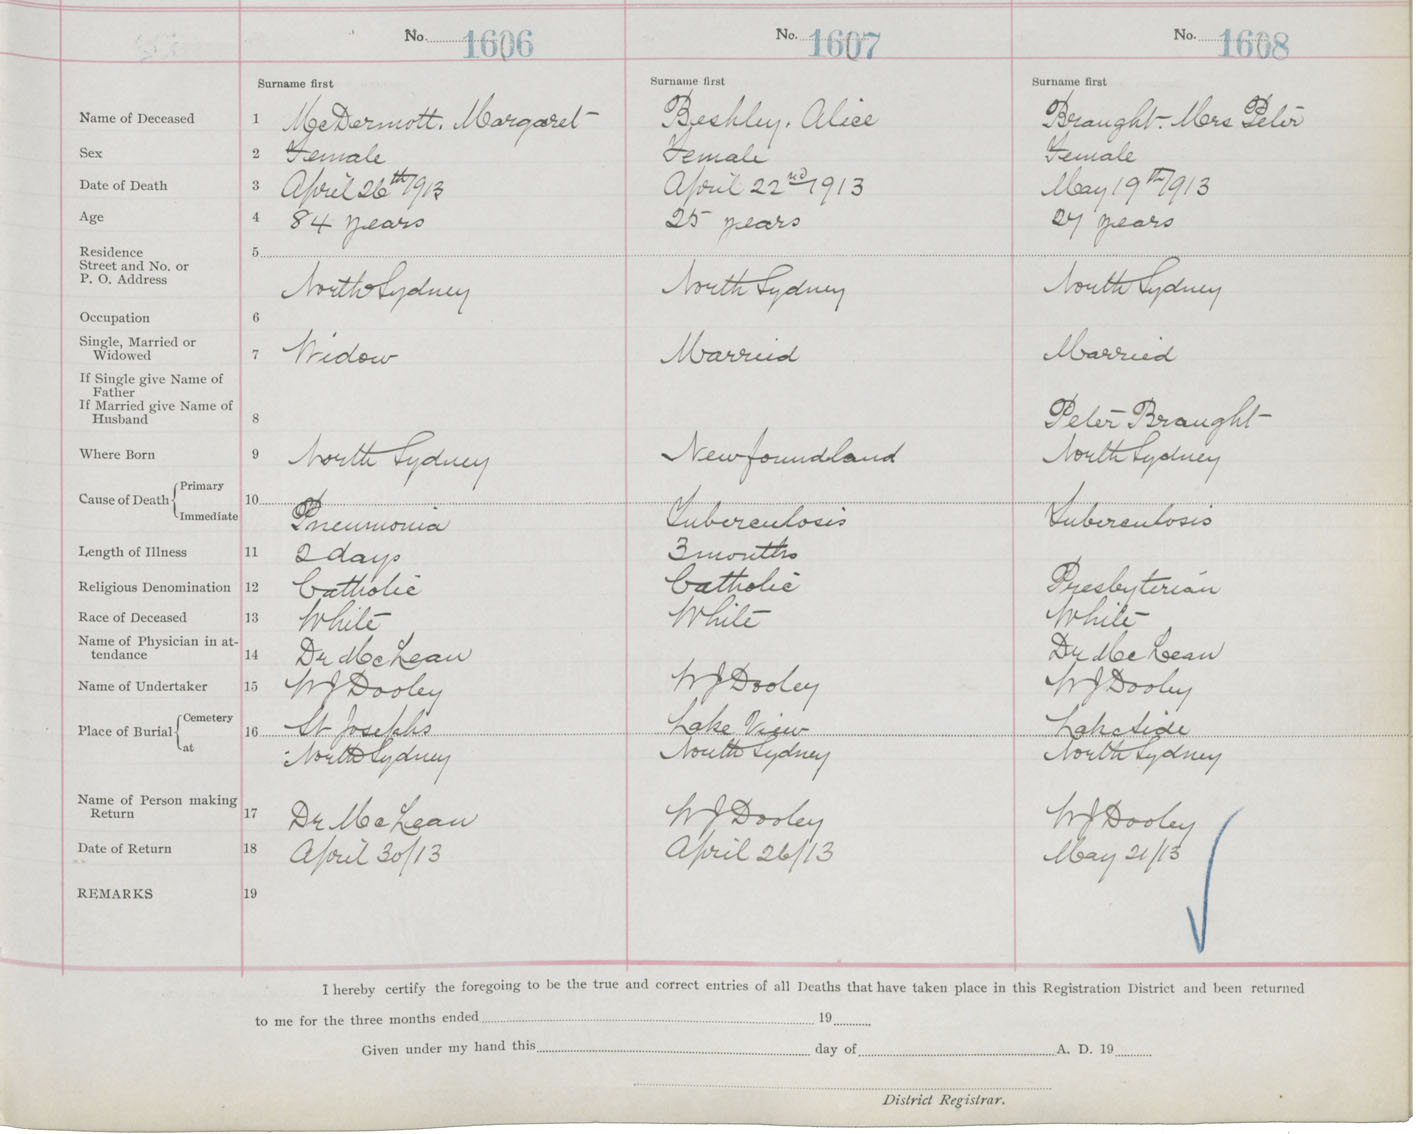 No. 1606 No. 1607 No. 1608
Surname first Surname first Surname first
Name of Deceased 1 McDermott, Margaret Beshley, Alice Braught, Mrs Peter
Sex 2 Female Female Female
Date of Death 3 April 26th 1913 April 22nd 1913 May 19th 1913
Age 4 84 years 25 years 27 years
Residence 5
Street and No. or
P. O. Address
North Sydney North Sydney North Sydney
Occupation 6
Single, Married or
Widowed 7 Widow Married Married
If Single give Name of
Father
If Married give Name of
Husband 8 Peter Braught
Where Born 9 North Sydney Newfoundland North Sydney
Cause of Death { Primary
10
Immediate Pneumonia Tuberculosis Tuberculosis
Length of Illness 11 2 days 3 months
Religious Denomination 12 Catholic Catholic Presbyterian
Race of Deceased 13 White White White
Name of Physician in at-
tendance 14 Dr McLean Dr McLean
Name of Undertaker 15 W J Dooley W J Dooley W J Dooley
Place of Burial { Cemetery 16 St Josephs Lake View Lakeside
at North Sydney North Sydney North Sydney
Name of Person making
Return 17 Dr McLean W J Dooley W J Dooley
Date of Return 18 April 30/13 April 26/13 May 21/13
REMARKS 19
I hereby certify the foregoing to be the true and correct entries of all Deaths that have taken place in this Registration District and been returned
to me for the three months ended 19
Given under my hand this day of A. D. 19
District Registrar.